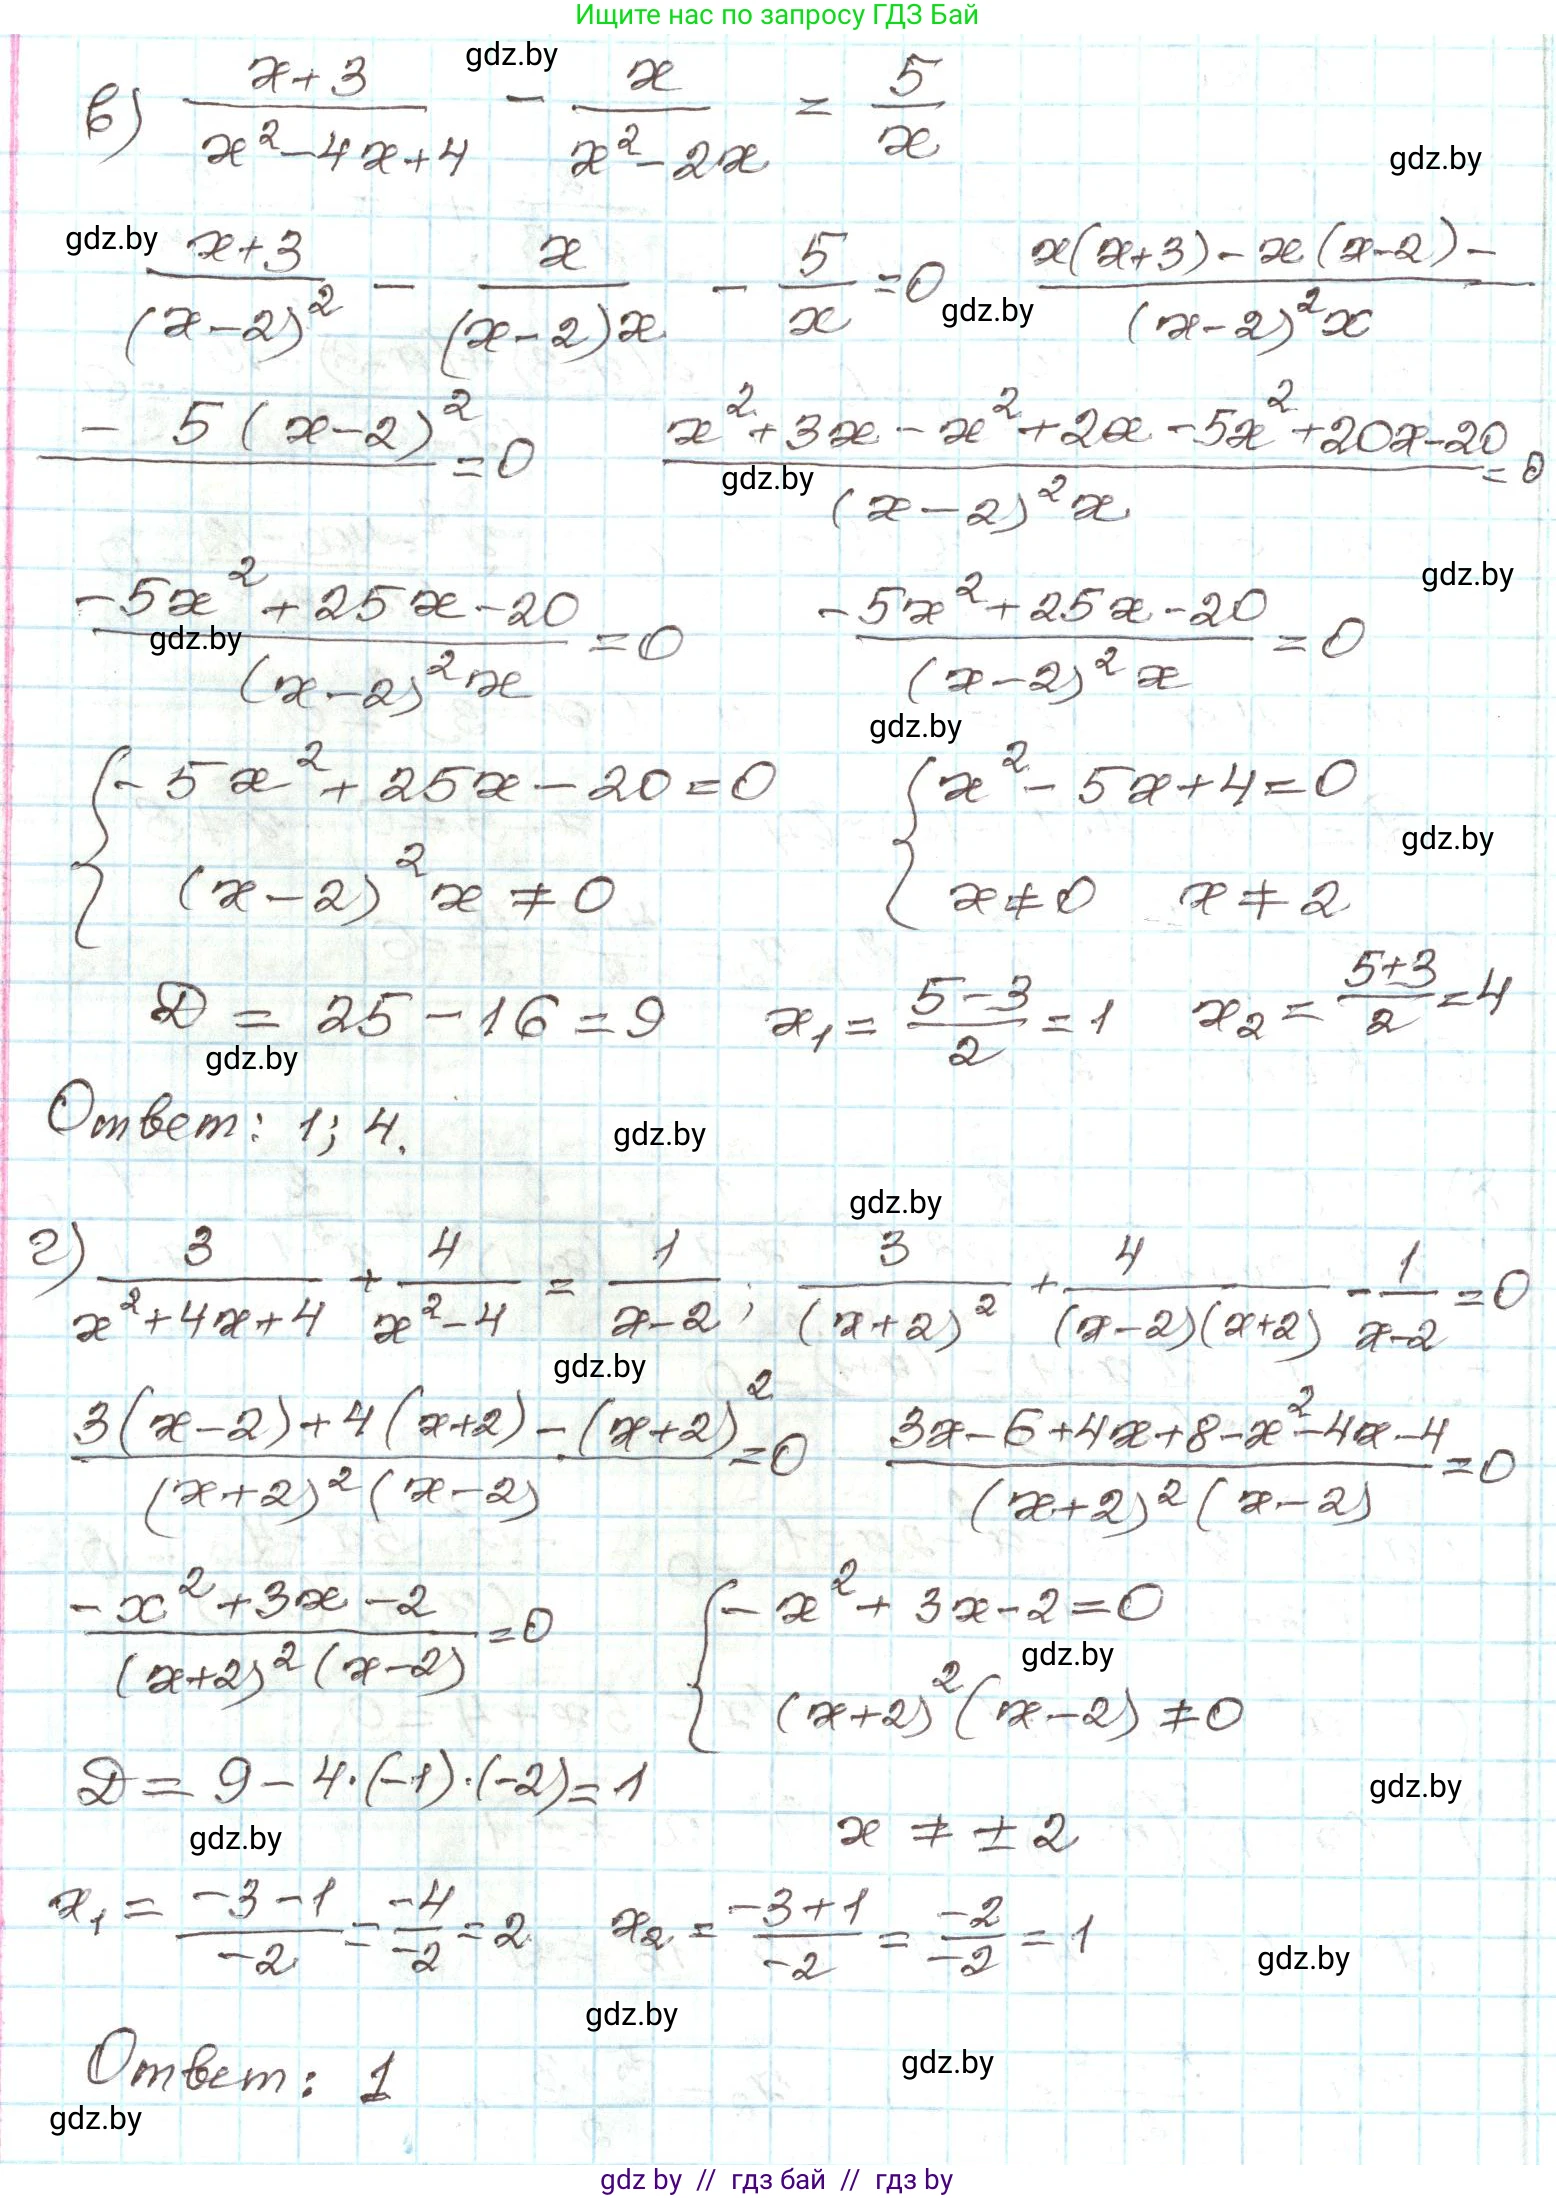 Ищите нас по запросу ГДЗ Бай
gdz.by
в) (x+3)/(x²-4x+4) - x/(x²-2x) = 5/x
gdz.by
gdz.by
(x+3)/(x-2)² - x/((x-2)x) - 5/x =0 (x(x+3)-x(x-2)-)/((x-2)²x)
gdz.by
(- 5(x-2)²) =0 (x²+3x-x²+2x-5x²+20x-20)/((x-2)²x) =0
gdz.by
gdz.by
(-5x²+25x-20)/((x-2)²x) =0 (-5x²+25x-20)/((x-2)²x) =0
gdz.by
gdz.by
{-5x²+25x-20=0 {x²-5x+4=0
gdz.by
(x-2)²x≠0 x≠0 x≠2
D = 25-16=9 x₁=(5-3)/2=1 x₂=(5+3)/2=4
gdz.by
Ответ: 1; 4.
gdz.by
gdz.by
г) 3/(x²+4x+4) + 4/(x²-4) = 1/(x-2); 3/(x+2)² + 4/((x-2)(x+2)) - 1/(x-2) =0
gdz.by
(3(x-2)+4(x+2)-(x+2)²)/((x+2)²(x-2)) =0 (3x-6+4x+8-x²-4x-4)/((x+2)²(x-2)) =0
(-x²+3x-2)/((x+2)²(x-2)) =0 {-x²+3x-2=0
gdz.by
(x+2)²(x-2)≠0
D=9-4·(-1)·(-2)=1
gdz.by
x≠±2
gdz.by
x₁=(-3-1)/-2=-4/-2=2 x₂=(-3+1)/-2=-2/-2=1
gdz.by
gdz.by
Ответ: 1
gdz.by
gdz.by
gdz by // гдз бай // гдз by